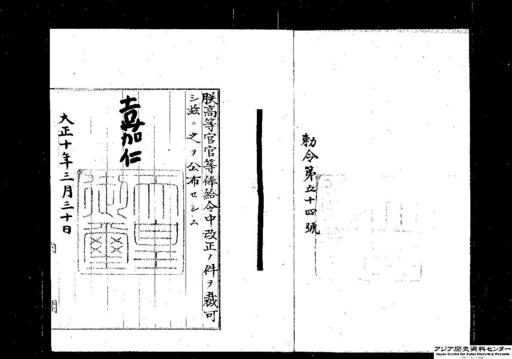 勅令第五十四號
朕高等官官等俸給令中改正ノ件ヲ裁可
シ茲ニ之ヲ公布セシム
嘉仁
大正十年三月三十日
内閣
アジア歴史資料センター
Japan Center for Asian Historical Records